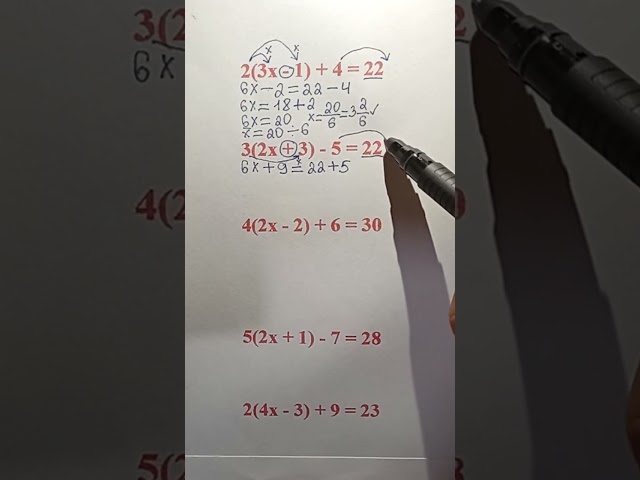 2(3x - 1) + 4 = 22
6x - 2 = 22 - 4
6x = 18 + 2
6x = 20 x = 20/6 = 3 2/6 ✓
x = 20 ÷ 6
3(2x + 3) - 5 = 22
6x + 9 = 22 + 5
4(2x - 2) + 6 = 30
5(2x + 1) - 7 = 28
2(4x - 3) + 9 = 23